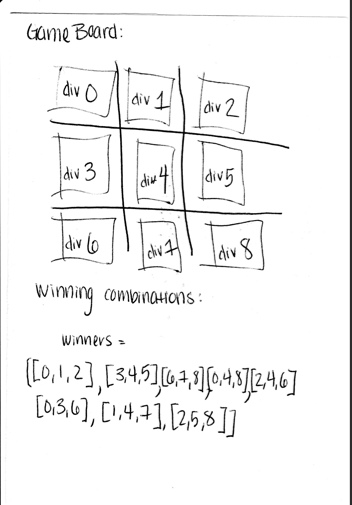 Game Board:
div 0 div 1 div 2
div 3 div 4 div 5
div 6 div 7 div 8
Winning combinations:
winners =
[[0,1,2], [3,4,5],[6,7,8],[0,4,8],[2,4,6]
[0,3,6], [1,4,7], [2,5,8]]